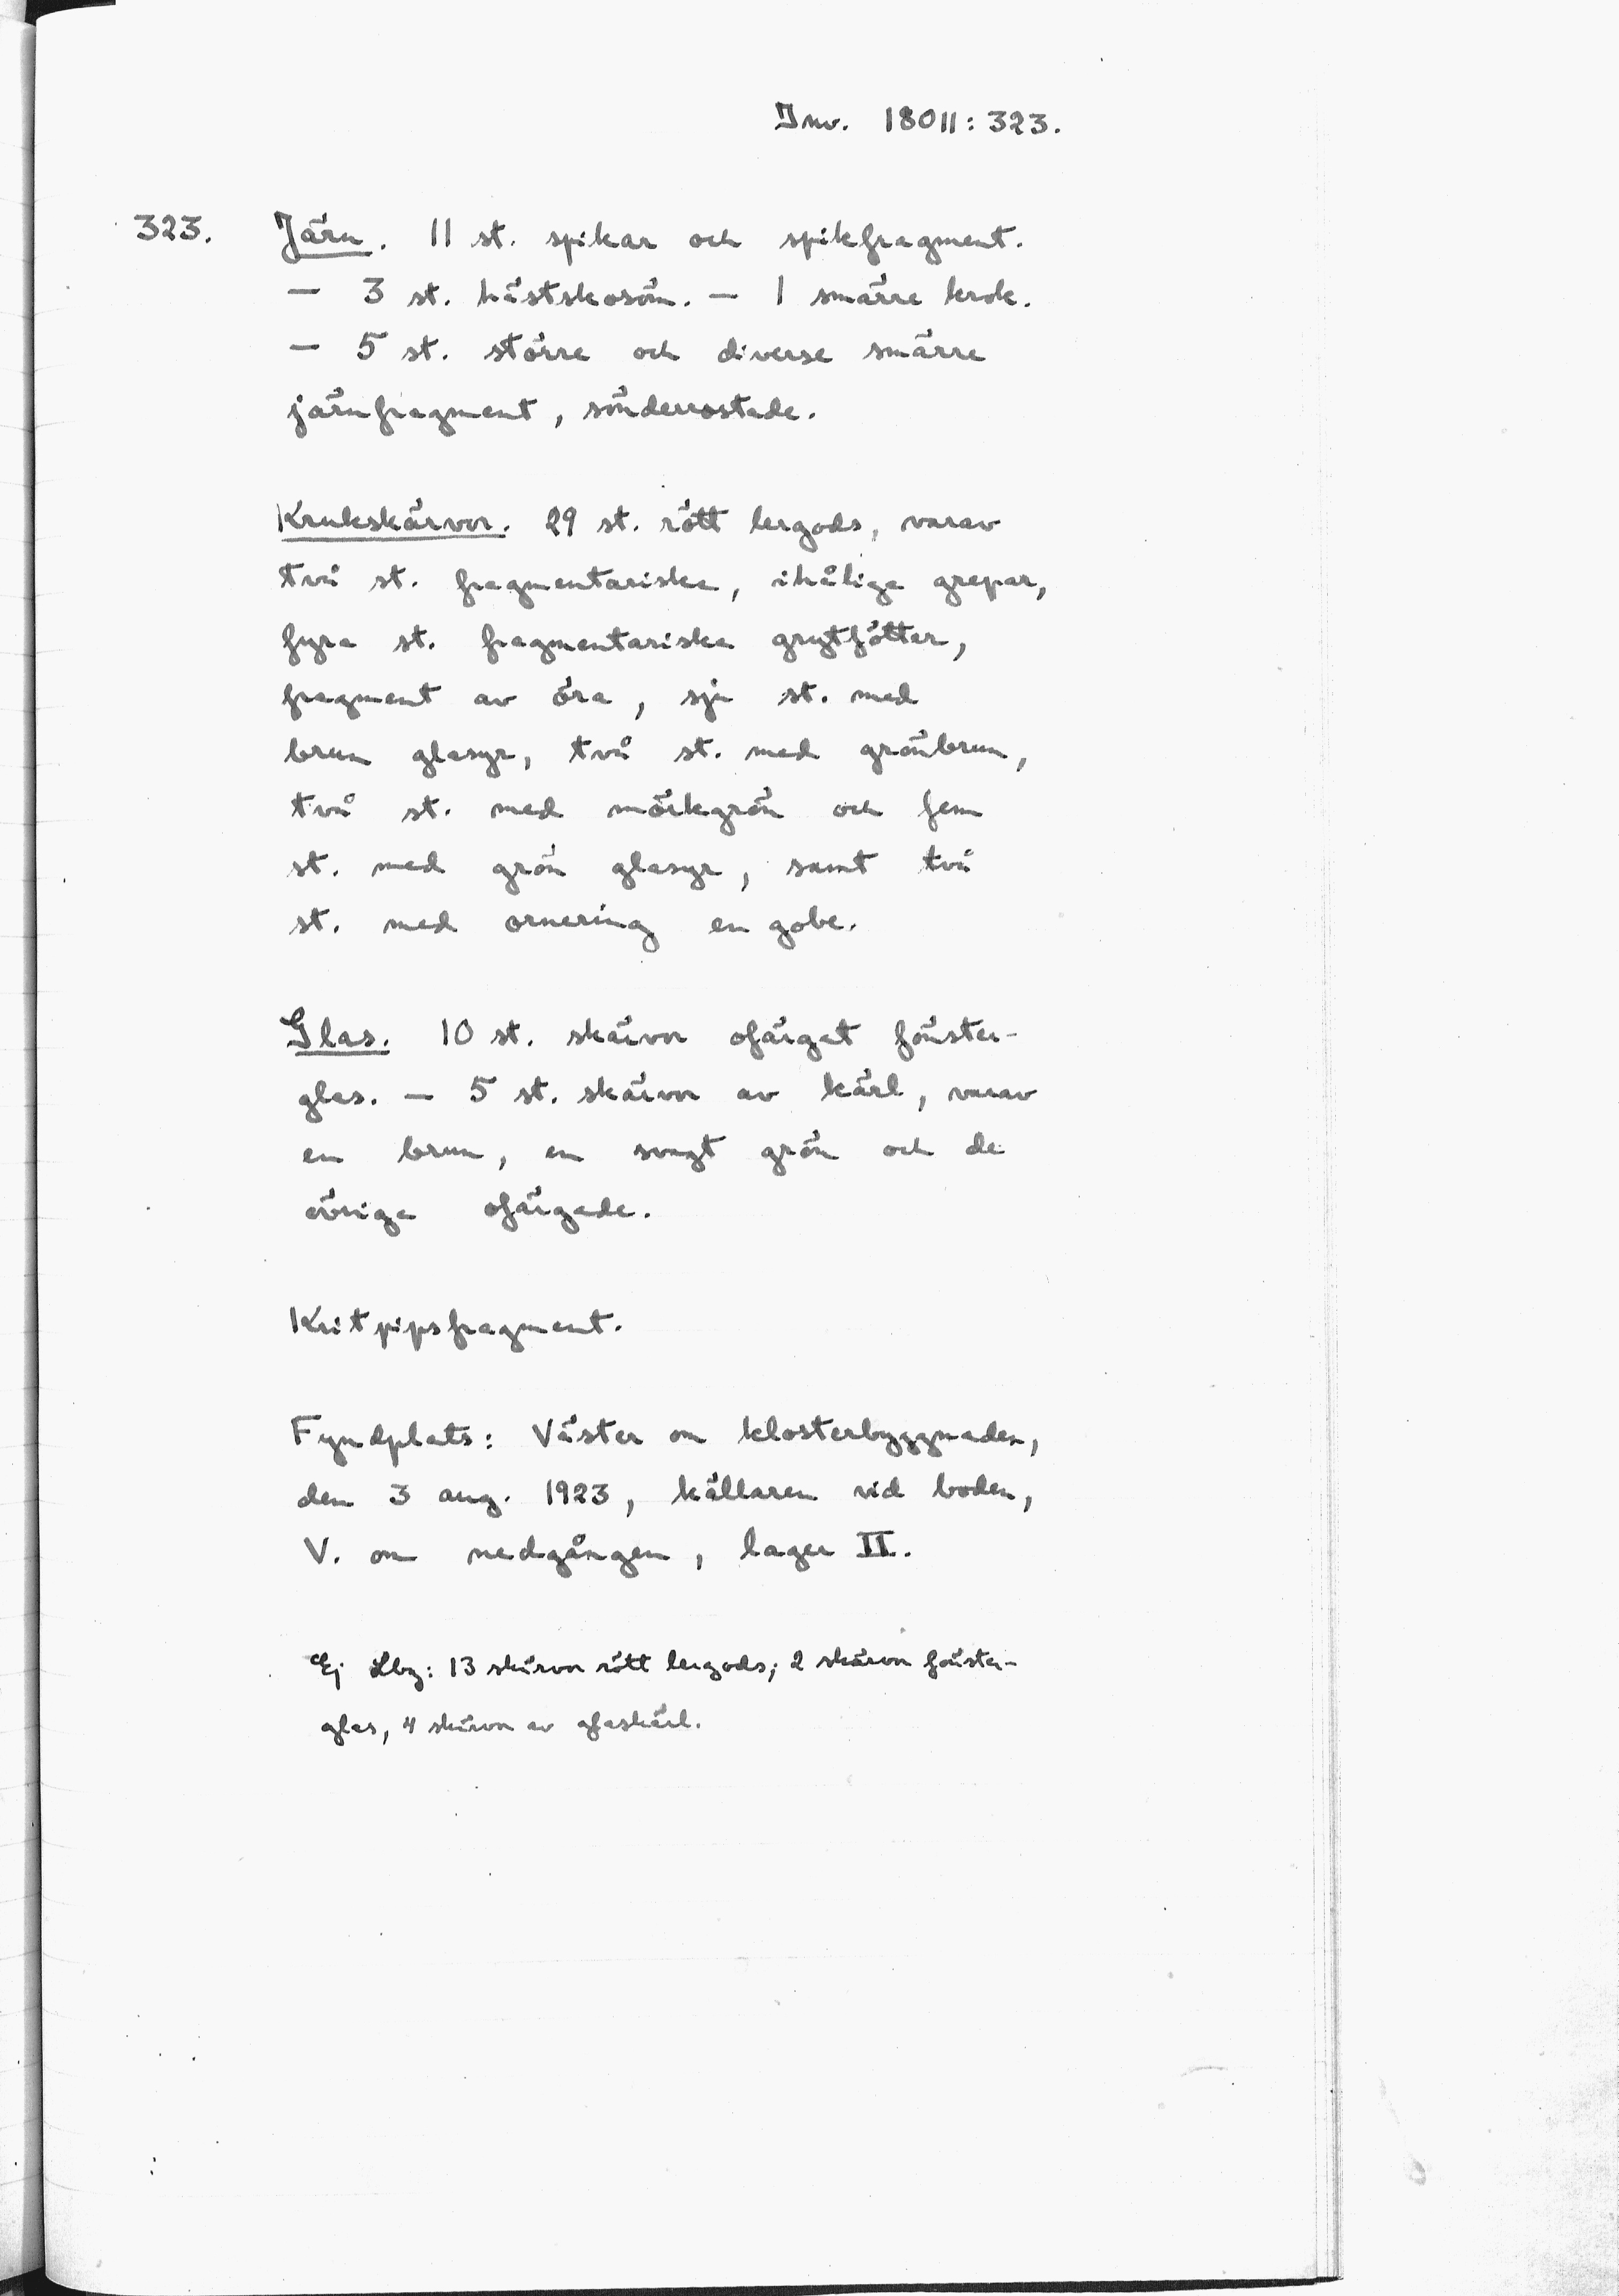 Inv. 18011:323.
323. Järn. 11 st. spikar och spikfragment.
— 3 st. hästskosöm. — 1 smärre krok.
— 5 st. större och diverse smärre
järnfragment, sönderrostade.
Krukskärvor. 29 st. rött lergods, varav
två st. fragmentariska, ihåliga grepar,
fyra st. fragmentariska grytfötter,
fragment av öra, sju st. med
brun glasyr, två st. med grönbrun,
två st. med mörkgrön och fem
st. med grön glasyr, samt två
st. med ornering en gobe.
Glas. 10 st. skärvor ofärgat fönster-
glas. — 5 st. skärvor av kärl, varav
en brun, en svagt grön och de
övriga ofärgade.
Kritpipsfragment.
Fyndplats: Väster om klosterbyggnaden,
den 3 aug. 1923, källaren vid boden,
V. om nedgången, lager II.
Ej Lbg: 13 skärvor rött lergods; 2 skärvor fönster-
glas, 4 skärvor av glaskärl.